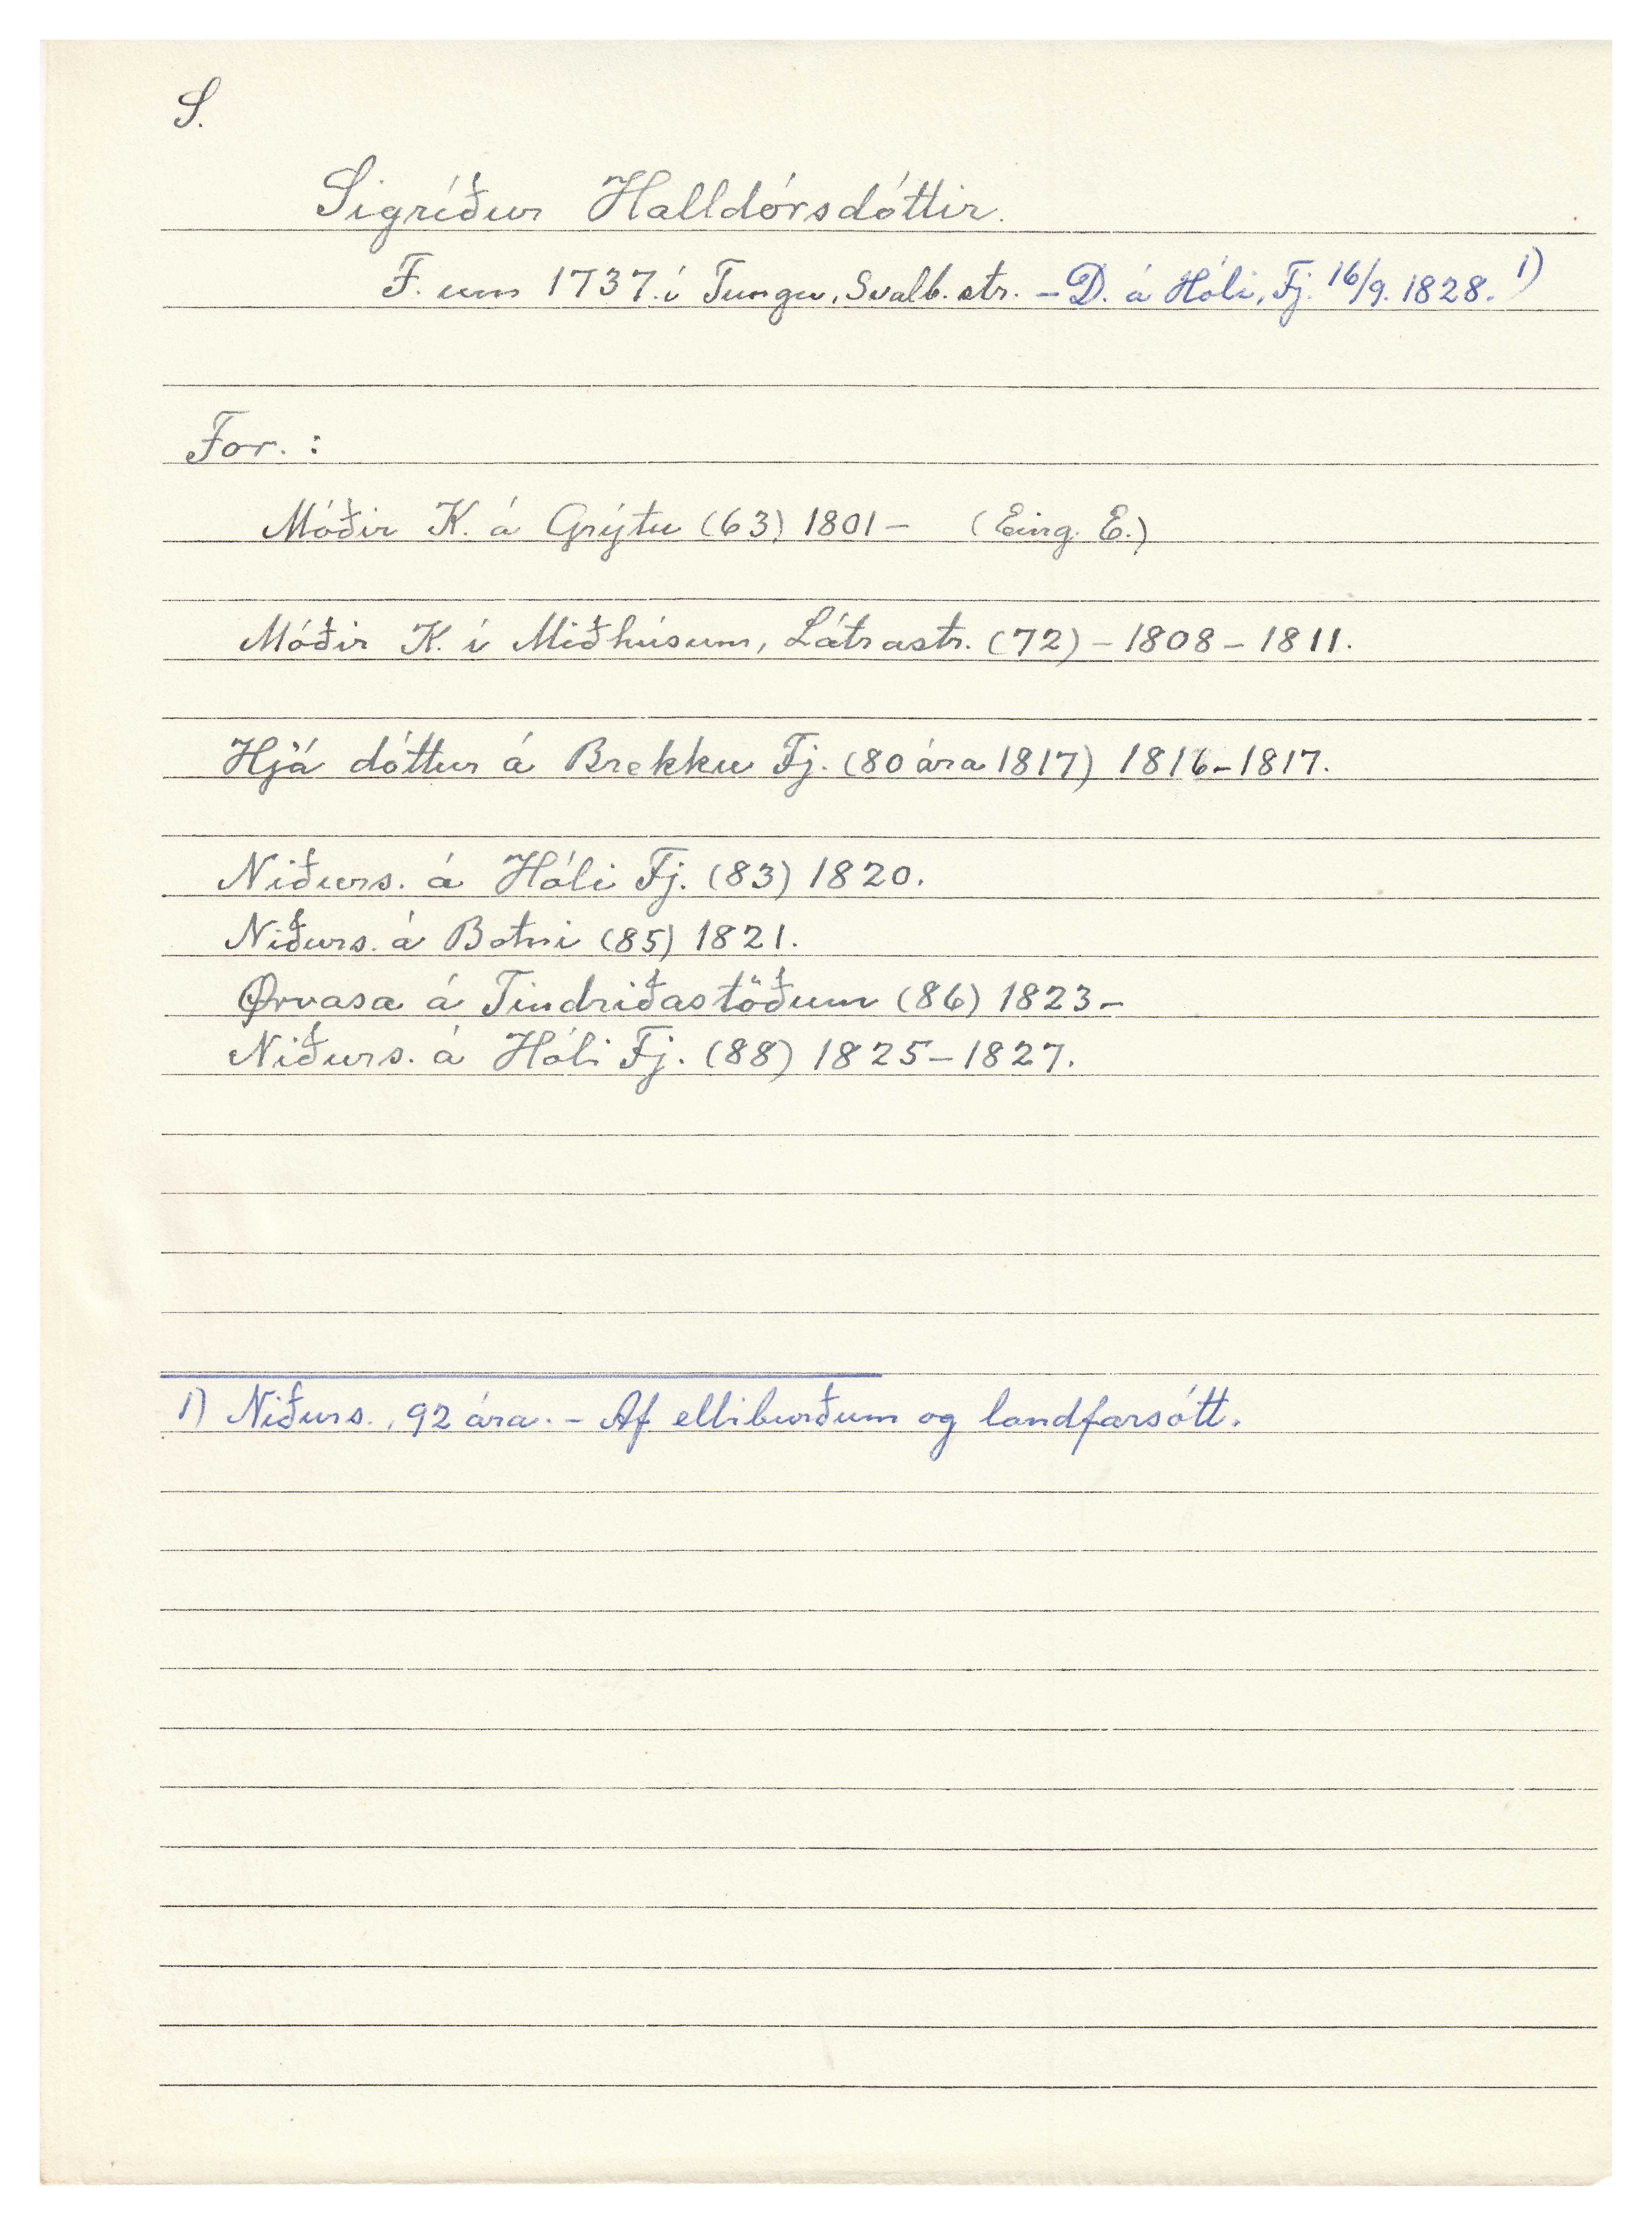 S.
Sigríður Halldórsdóttir.
F. um 1737. í Tungu, Svalb.str. - D. á Hóli, Fj. 16/9. 1828. 1)
For. :
Móðir K. á Grýtu (63) 1801 - (Eing. E.)
Móðir K. í Miðhúsum, Látrastr. (72) - 1808 - 1811.
Hjá dóttur á Brekku Fj. (80 ára 1817) 1816-1817.
Niðurs. á Hóli Fj. (83) 1820.
Niðurs. á Botni (85) 1821.
Örvasa á Tindriðastöðum (86) 1823-
Niðurs. á Hóli Fj. (88) 1825-1827.
1) Niðurs., 92 ára. - Af elliburðum og landfarsótt.